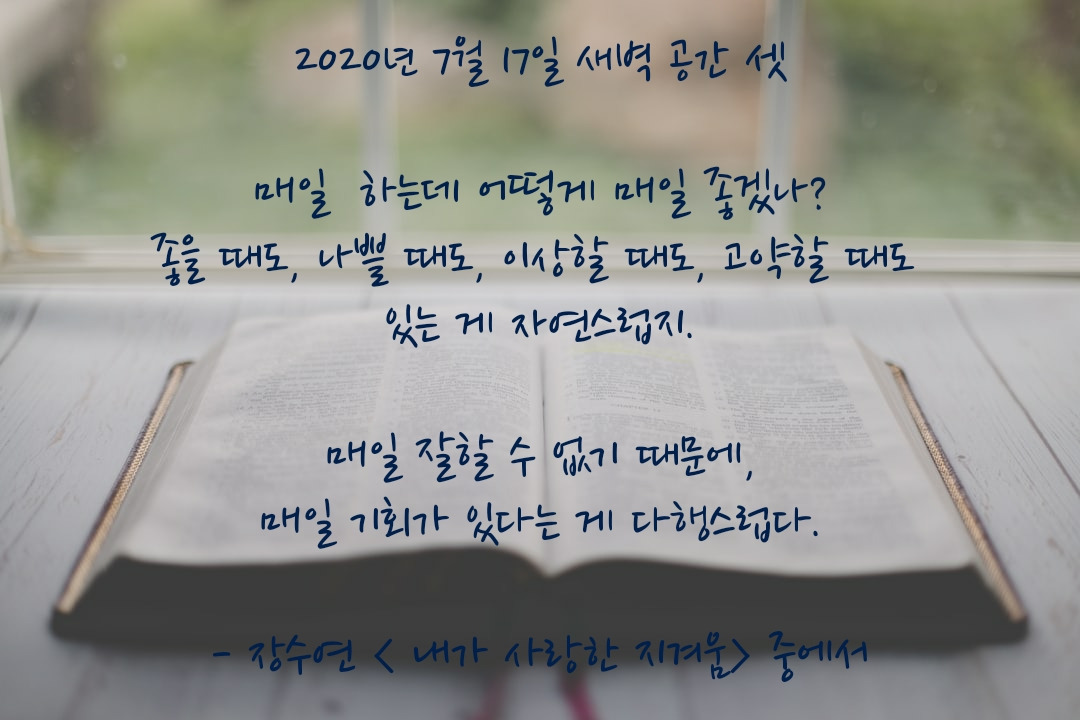 2020년 7월 17일 새벽 공간 셋
매일 하는데 어떻게 매일 좋겠나?
좋을 때도, 나쁠 때도, 이상할 때도, 고약할 때도
있는 게 자연스럽지.
매일 잘할 수 없기 때문에,
매일 기회가 있다는 게 다행스럽다.
- 장수연 < 내가 사랑한 지겨움> 중에서